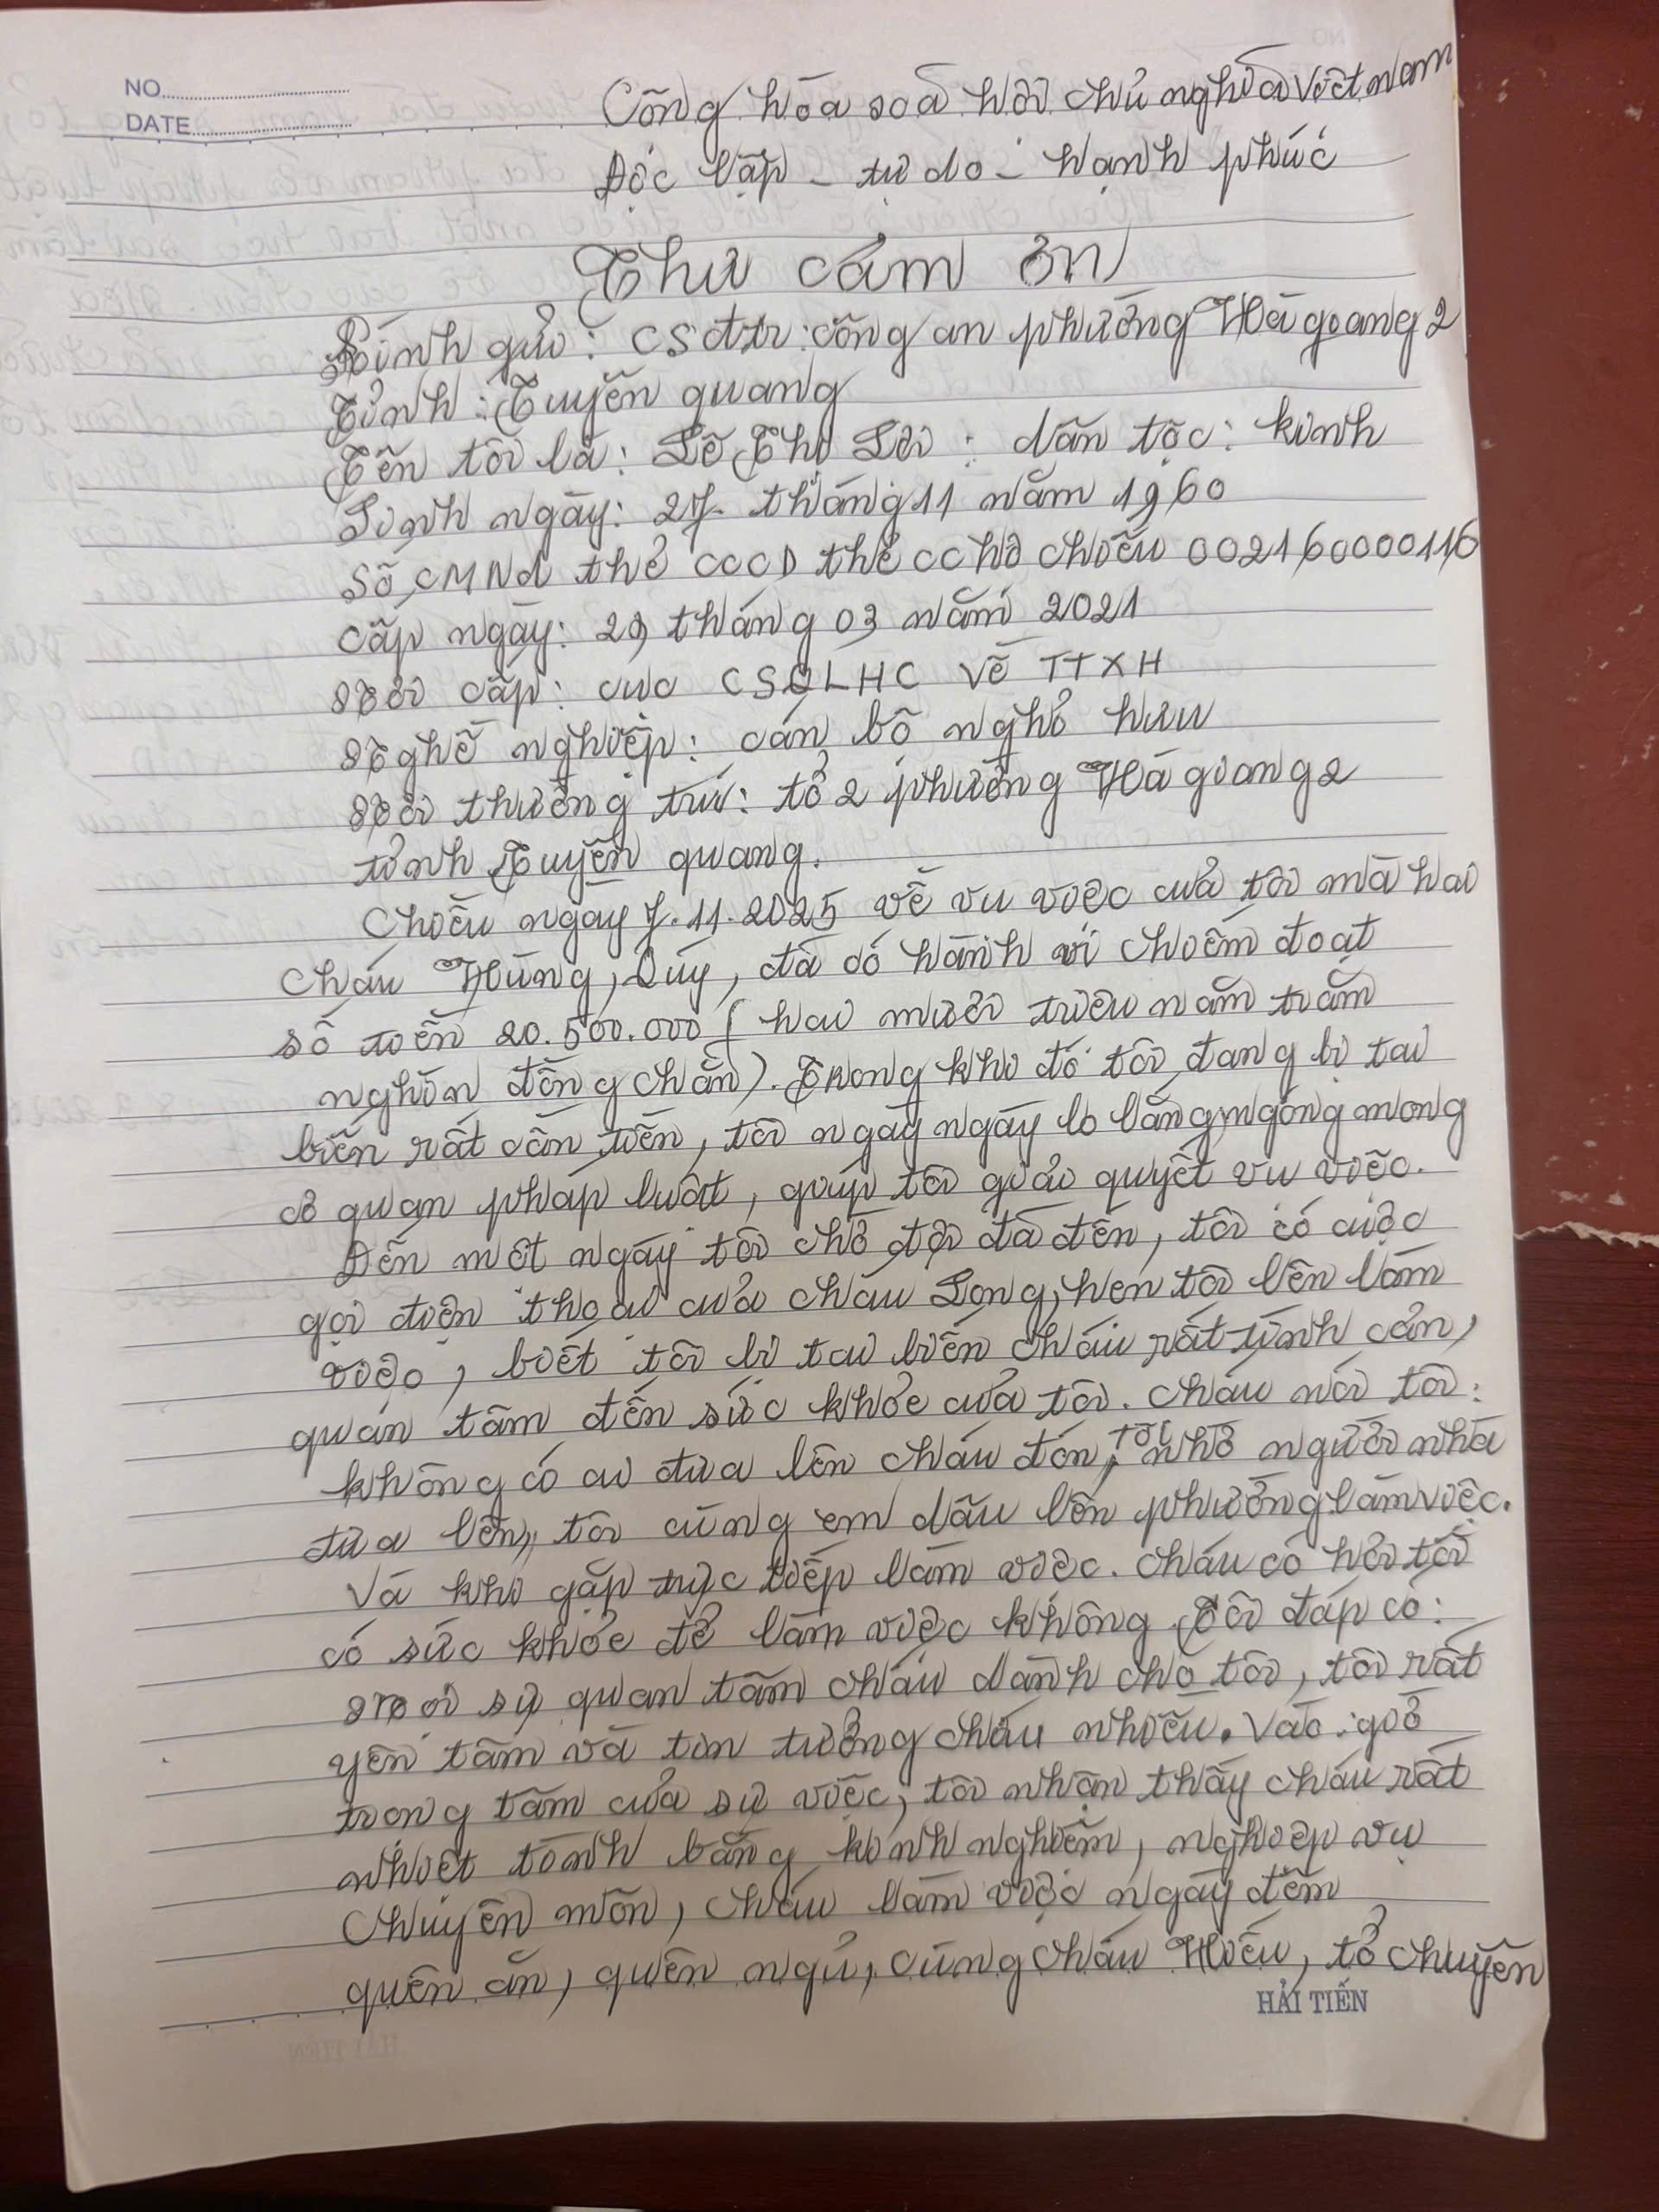 NO
DATE
Cộng hòa xoã hội chủ nghĩa Việt nam
Độc lập - tự do - hạnh phúc
Thư cám ơn
Kính gửi: CSđtr: công an phường Hà giang 2
Tỉnh: Tuyên quang
Tên tôi là: Lê Thị Lơi: dân tộc: kinh
Sinh ngày: 27. tháng 11 năm 1960
Số CMNd thẻ CCCD thẻ CC hộ chiếu 002160000116
cấp ngày: 29 tháng 03 năm 2021
Nơi cấp: cục CSQLHC Về TTXH
Nghề nghiệp: cán bộ nghỉ hưu
Nơi thường trú: tổ 2 phường Hà giang 2
tỉnh Tuyên quang.
Chiều ngay 7.11.2025 về vu việc của tôi mà hai
cháu Hùng, Quý, đã có hành vi chiếm đoạt
số tiền 20.500.000 ( hai mươi triệu năm trăm
nghìn đồng chẵn). Trong khi đó tôi đang bị tai
biến rất cần tiền, tôi ngày ngày lo lắng ngóng mong
cơ quan pháp luật, giúp tôi giải quyết vu việc.
Đến một ngày tôi chờ đợi đã đến, tôi có cuộc
gọi điện thoại của cháu Long, hen tôi lên làm
việc, biết tôi bị tai biến cháu rất tình cản,
quán tâm đến sức khỏe của tôi. cháu nói tôi:
không có ai đưa lên cháu đón, tôi nhờ người nhà
đưa lên, tôi cùng em dâu lên phường làm việc.
Và khi gặp trực tiếp làm việc. cháu có hỏi tôi
có sức khỏe để làm việc không. Tôi đáp có:
Mọi sự quan tâm cháu dành cho tôi, tôi rất
yên tâm và tin tưởng cháu nhiều. Vào: giờ
trong tâm của sự việc, tôi nhận thấy cháu rất
nhiệt tình bằng kinh nghiêm, nghiệp vụ
Chuyên môn, cháu làm việc ngày đêm
quên ăn, quên ngủ, cùng cháu Hiếu, tổ chuyên
HẢI TIẾN